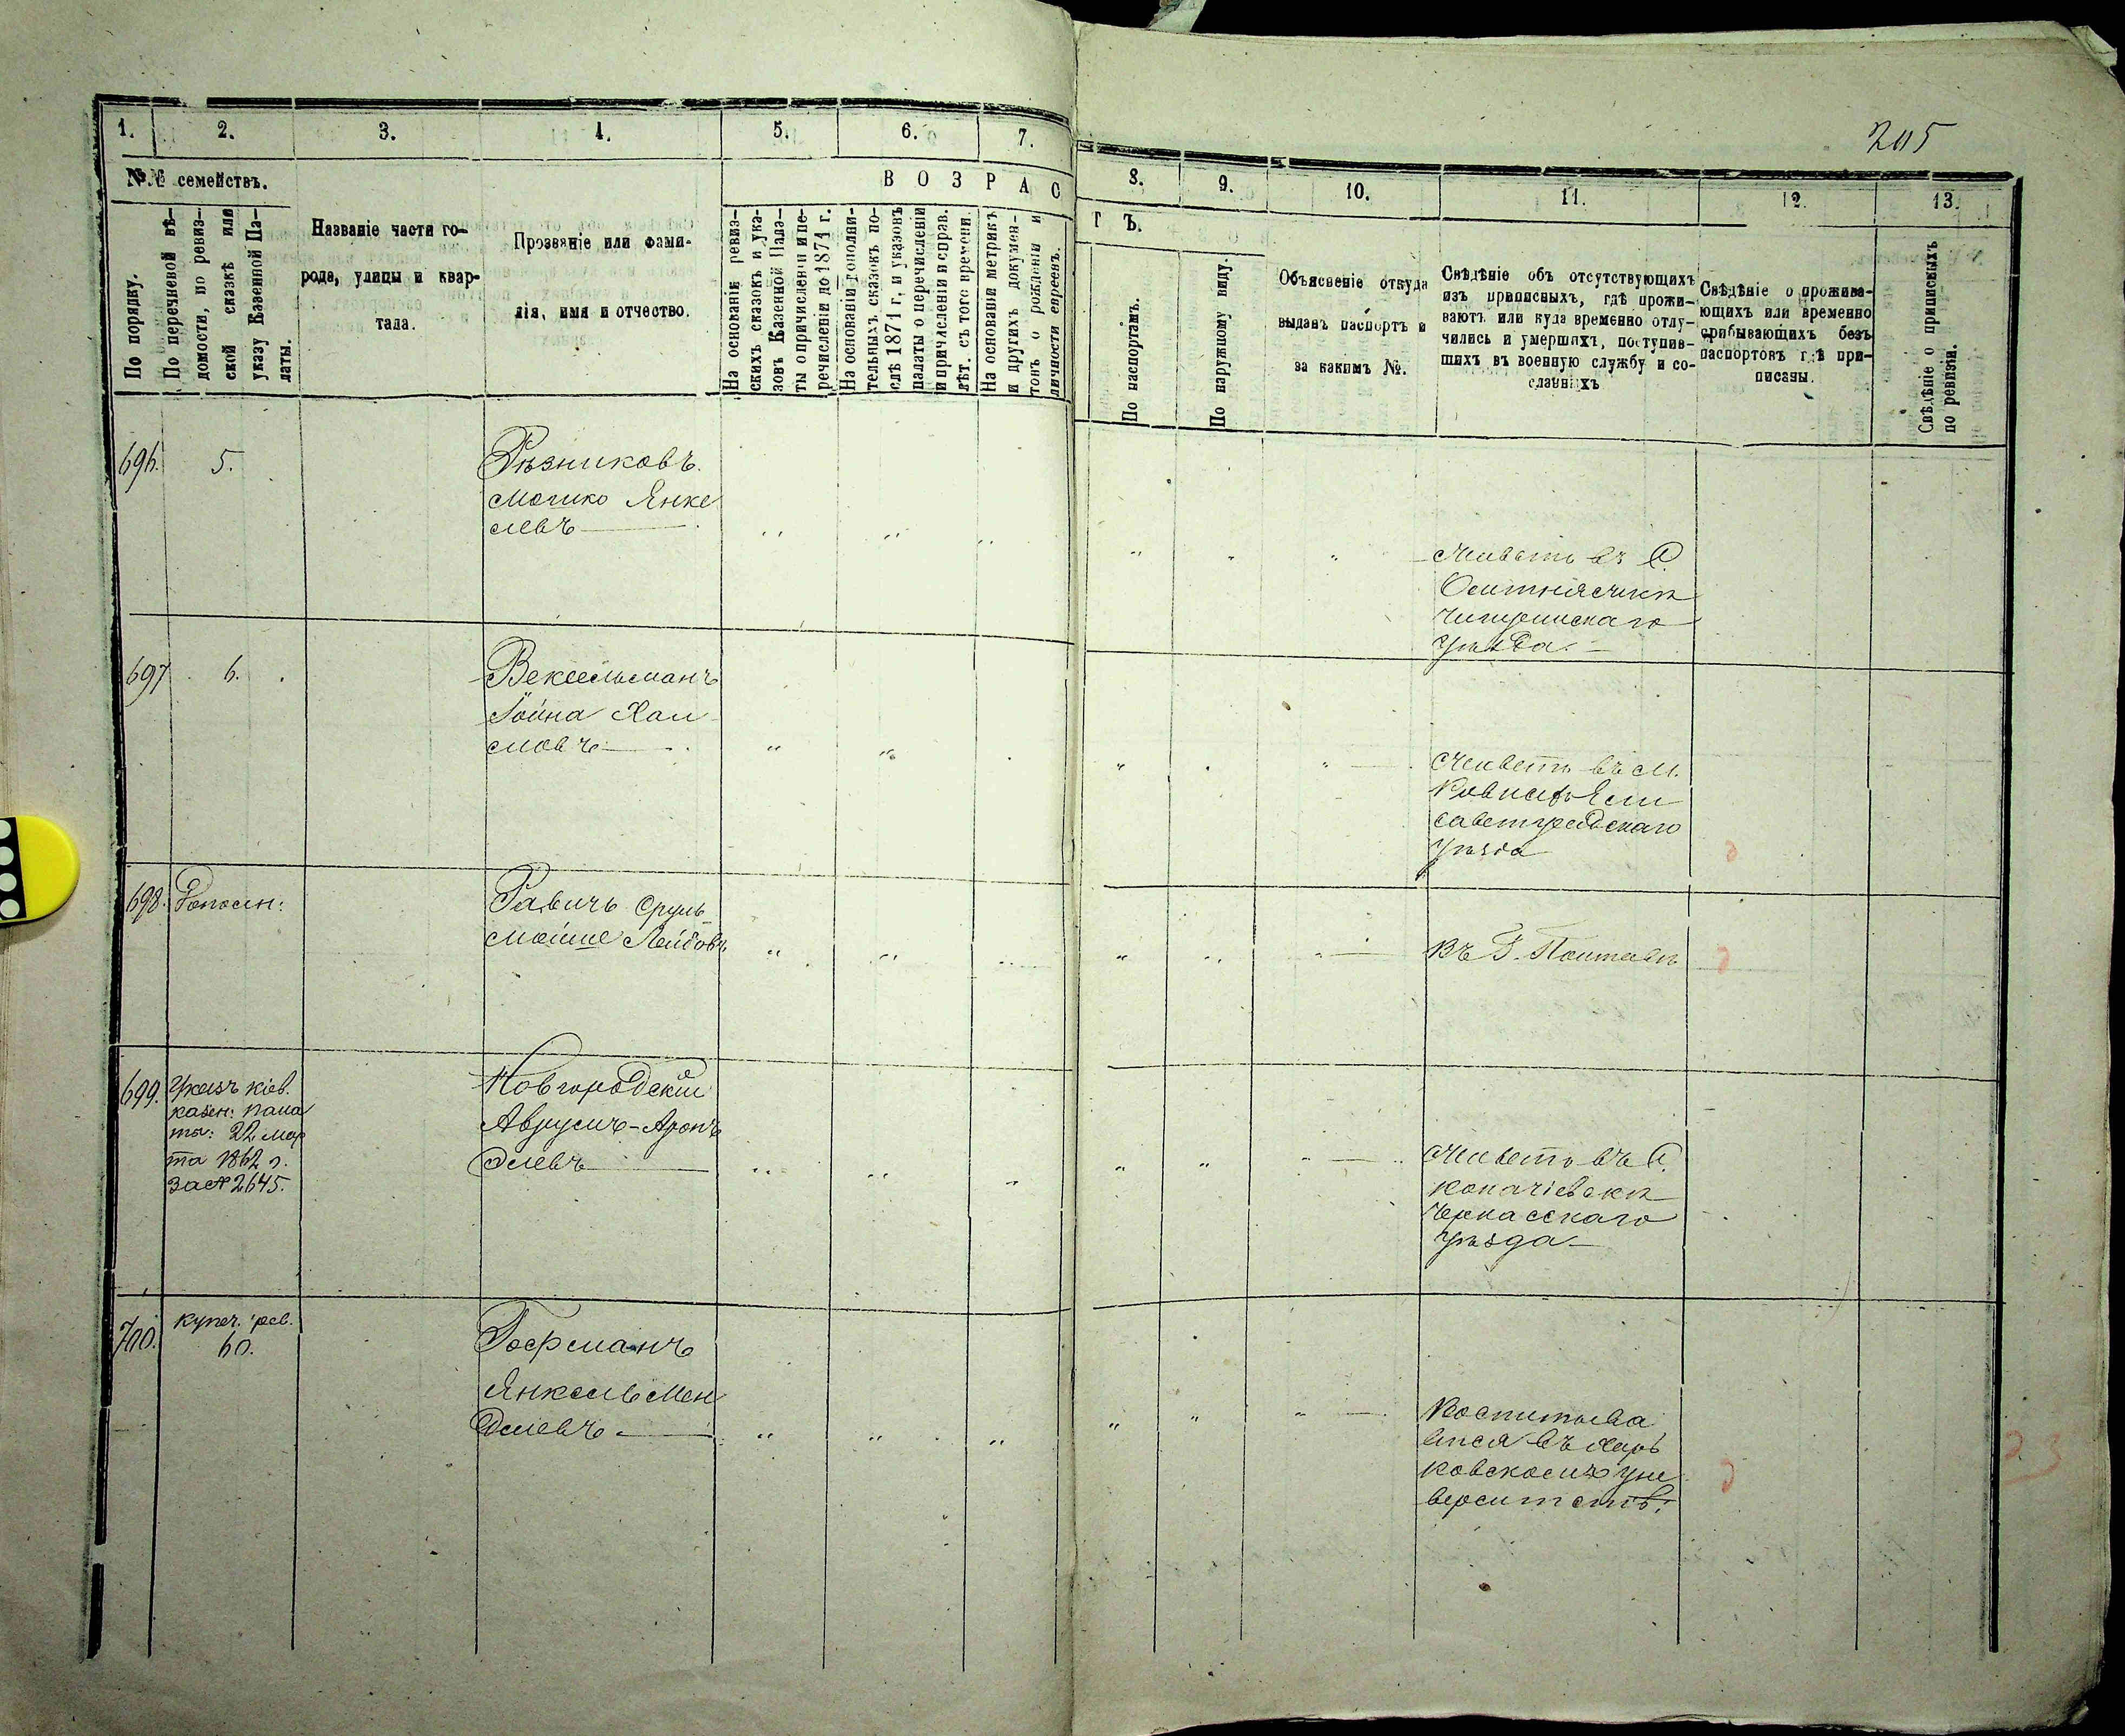 205
1. 2. 3. 4. 5. 6. 7. 8. 9. 10. 11. 12. 13.
№№ семействъ.
В О З Р А С Т Ъ.
По порядку.
По перечневой вѣ-
домости, по ревиз-
ской сказкѣ или
указу Казенной Па-
латы.
Названіе части го-
рода, улицы и квар-
тала.
Прозваніе или фами-
лія, имя и отчество.
На основаніи ревиз-
скихъ сказокъ и ука-
зовъ Казенной Пала-
ты о причисленіи и пе-
речисленіи до 1871 г.
На основаніи дополни-
тельныхъ сказокъ по-
слѣ 1871 г. и указовъ
палаты о перечисленіи
и причисленіи и справ.
лѣт. съ того времени.
На основаніи метрикъ
и другихъ докумен-
товъ о рожденіи и
личности евреевъ.
По паспортамъ.
По наружному виду.
Объясненіе откуда
выданъ паспортъ и
за какимъ №.
Свѣдѣніе объ отсутствующихъ
изъ приписныхъ, гдѣ прожи-
ваютъ или куда временно отлу-
чились и умершихъ, поступив-
шихъ въ военную службу и со-
сланныхъ
Свѣдѣніе о прожива-
ющихъ или временно
прибывающихъ безъ
паспортовъ гдѣ при-
писаны.
Свѣдѣніе о приписныхъ
по ревизіи.
696. 5.
Рѣзниковъ
Мошко Янке
левъ
Живетъ въ С.
Оситняжкѣ
Чигиринскаго
Уѣзда.
697 6.
Векссельманъ
Іойна Хаи
мовъ
Живетъ въ м.
Ели
саветградскаго
Уѣзда
698.
Равичъ Сруль
Мойше Лейбовъ
Въ Г. Полтавѣ
699. Указъ Кіев.
Казен: Пала
ты: 22 мар
та 1862 г.
за № 2645.
Новгородскій
Аврумъ-Аронъ
Элевъ
Живетъ въ С.
Копачіевкѣ
Черкасскаго
Уѣзда
700. Купеч. рев.
60.
Гофманъ
Янкель Мен
делевъ
Воспитыва
ется въ Харь
ковскомъ уни
верситетѣ.
23